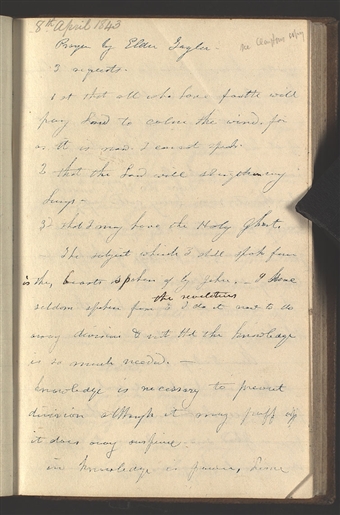 8th April 1843
Mr Claytons copy
Prayer by Elder Taylor.
3 requests.
1st that all who have faith will
pray Lord to calm the wind, for
as it is now I cannot speak
2 that the Lord will strengthen my
lungs—
3d that I may have the Holy Ghost.
The subject which I shall speak from
is the, beasts spoken of by John. I have
the revelations
seldom spoken from I do it now to do
away division & not that the knowledge
is so much needed. —
knowledge is necessary to prevent
division although it may puff up
it does away suspense
in knowledge is power,